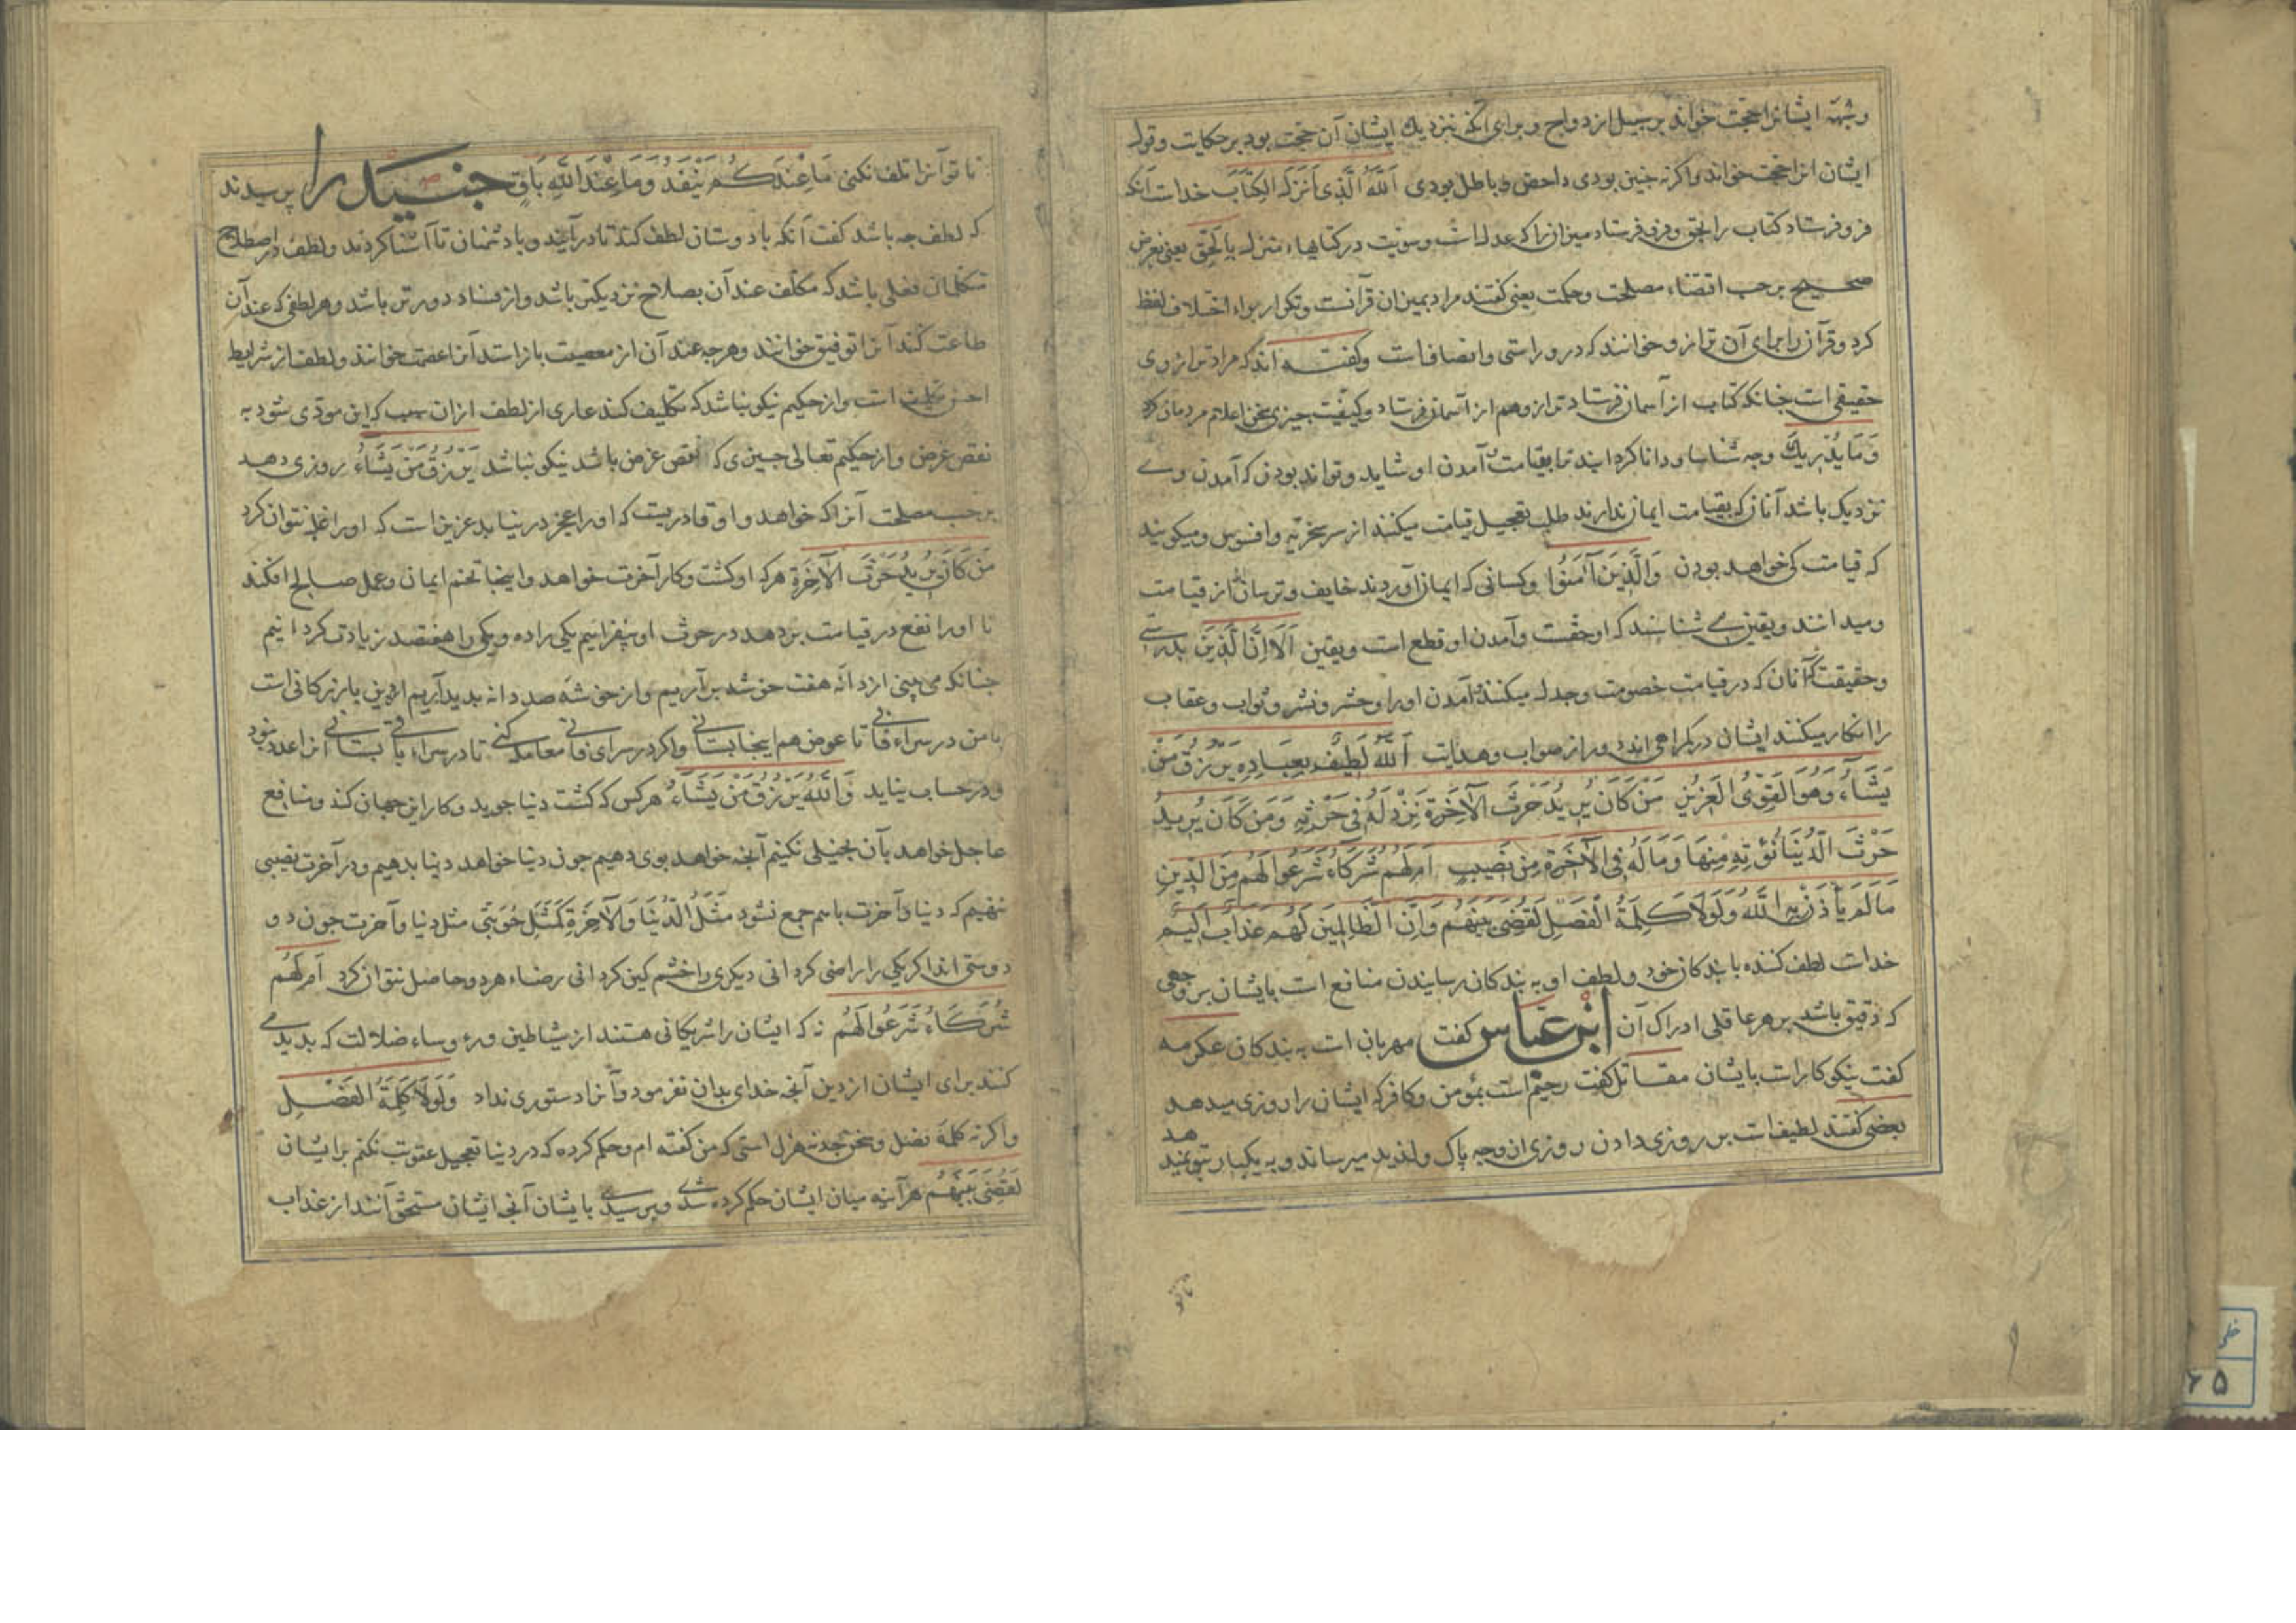 وشبهه ایشانرا حجت خواند بر سبیل ازدواج و برای آنکه نزدیک ایشان آن حجت بود بر حکایت وقول
ایشان انرا حجت خواند واکرنه چنین بودی داحض وباطل بودی اَللّٰهُ الَّذِی اَنْزَلَ الْکِتَابَ خداست آنکه
فرو فرستاد کتاب را بحق و فرو فرستاد میزان را که عدل است وسویت در کتابهاء منزل بِالْحَقِّ یعنی بغرض
صحیح بر حسب اقتضاء مصلحت وحکمت یعنی کفتند مراد بمیزان قرآنست وتکرار براء اختلاف لفظ
کرد وقرآن را برای آن ترازو خوانند که درو راستی وانصافست وکفته اند که مراد ترازوی
حقیقی است چنانکه کتاب از آسمان فرستاد ترازو هم از آسمان فرستاد وکیفیت چیزی سختن اعلام مردمان کرد
وَمَا یُدْرِیکَ وچه شناسا ودانا کرد ایند ترا بقیامت آمدن او شاید وتواند بودن که آمدن وی
نزدیک باشد آنان که بقیامت ایمان ندارند طلب تعجیل قیامت میکنند از سر سخریه وافسوس ومیکویند
که قیامت کی خواهد بودن وَالَّذِینَ آمَنُوا وکسانی که ایمان آوردند خایف وترسان از قیامت
ومیدانند ویقین می شناسند که او حقست وآمدن او قطع است ویقین اَلَا اِنَّ الَّذِینَ بدرستی
وحقیقت که آنان که در قیامت خصومت وجدل میکنند آمدن او را وحشر ونشر وثواب وعقاب
را انکار میکنند ایشان در کمراهی اند دور از صواب وهدایت اَللّٰهُ لَطِیفٌ بِعِبَادِهِ یَرْزُقُ مَنْ
یَشَاءُ وَهُوَ الْقَوِیُّ الْعَزِیزُ مَنْ کَانَ یُرِیدُ حَرْثَ الْآخِرَةِ نَزِدْ لَهُ فِی حَرْثِهِ وَمَنْ کَانَ یُرِیدُ
حَرْثَ الدُّنْیَا نُؤْتِهِ مِنْهَا وَمَا لَهُ فِی الْآخِرَةِ مِنْ نَصِیبٍ اَمْ لَهُمْ شُرَکَاءُ شَرَعُوا لَهُمْ مِنَ الدِّینِ
مَا لَمْ یَأْذَنْ بِهِ اللّٰهُ وَلَوْلَا کَلِمَةُ الْفَصْلِ لَقُضِیَ بَیْنَهُمْ وَاِنَّ الظَّالِمِینَ لَهُمْ عَذَابٌ اَلِیمٌ
خداست لطف کننده با بندکان خود ولطف او به بندکان رسانیدن منافع است بایشان بر وجهی
که دقیق باشد بر هر عاقلی ادراک آن ابن عباس کفت مهربان است به بندکان عکرمه
کفت نیکوکار است بایشان مقاتل کفت رحیم است بمؤمن وکافر که ایشان را روزی میدهد
بعضی کفتند لطیفست بر روزی دادن روزی از وجه پاک ولذیذ میرساند وبه یکبار
تا تو
تا تو آنرا تلف نکنی مَا عِنْدَکُمْ یَنْفَدُ وَمَا عِنْدَ اللّٰهِ بَاقٍ جنید را پرسیدند
که لطف چه باشد کفت آنکه با دوستان لطف کند تا در آیند وبا دشمنان تا آشنا کردند ولطف در اصطلاح
متکلمان فعلی باشد که مکلف عند آن بصلاح نزدیکتر باشد واز فساد دورتر باشد وهر لطفی که عند آن
طاعت کند آنرا توفیق خوانند وهرچه عند آن از معصیت باز استد آنرا عصمت خوانند ولطف از شرایط
احسن تکلیف است واز حکیم نیکو نباشد که تکلیف کند عاری از لطف از آن سبب که این مودی شود به
نقض غرض واز حکیم تعالی چیزی که نقض غرض باشد نیکو نباشد یَرْزُقُ مَنْ یَشَاءُ روزی دهد
بر حسب مصلحت آنرا که خواهد واو قادریست که او را عجز در نیابد عزیز است که او را غلبه نتوان کرد
مَنْ کَانَ یُرِیدُ حَرْثَ الْآخِرَةِ هرکه او کشت وکار آخرت خواهد واینجا تخم ایمان وعمل صالح افکند
تا او را نفع در قیامت بر دهد در حرث او بیفزاییم یکی را ده ویکی را هفتصد زیادت کردانیم
چنانکه می بینی از دانه هفت خوشه بر آریم واز خوشه صد دانه بدید آریم این بازرکانی است
با من در سراء فانی تا عوض هم اینجا بستانی واکر در سرای فانی معامله کنی تا در سراء باقی بستانی آنرا عدد نبود
ودر حساب نیاید وَاللّٰهُ یَرْزُقُ مَنْ یَشَاءُ هرکس که کشت دنیا جوید وکار این جهان کند ومنافع
عاجل خواهد بآن بخیلی نکنیم آنچه خواهد بوی دهیم چون دنیا خواهد دنیا بدهیم ودر آخرت نصیبی
ننهیم که دنیا وآخرت باسم جمع نشود مَثَلُ الدُّنْیَا وَالْآخِرَةِ کَمَثَلِ مثل دنیا وآخرت چون دو
دوستی اند اکر یکی را راضی کردانی دیکری را خشم کین کردانی رضاء هر دو حاصل نتوان کرد اَمْ لَهُمْ
شُرَکَاءُ شَرَعُوا لَهُمْ نه که ایشان را شریکانی هستند از شیاطین ورؤساء ضلالت که بدید می
کنند برای ایشان از دین آنچه خدای بدان نفرمود وآنرا دستوری نداد وَلَوْلَا کَلِمَةُ الْفَصْلِ
واکر نه کلمه فصل وسخن جد نه هزل استی که من کفته ام وحکم کرده که در دنیا تعجیل عقوبت نکنم بر ایشان
لَقُضِیَ بَیْنَهُمْ هر آینه میان ایشان حکم کرده شدی وبرسیدی بایشان آنچه ایشان مستحق آنند از عذاب
۶۵